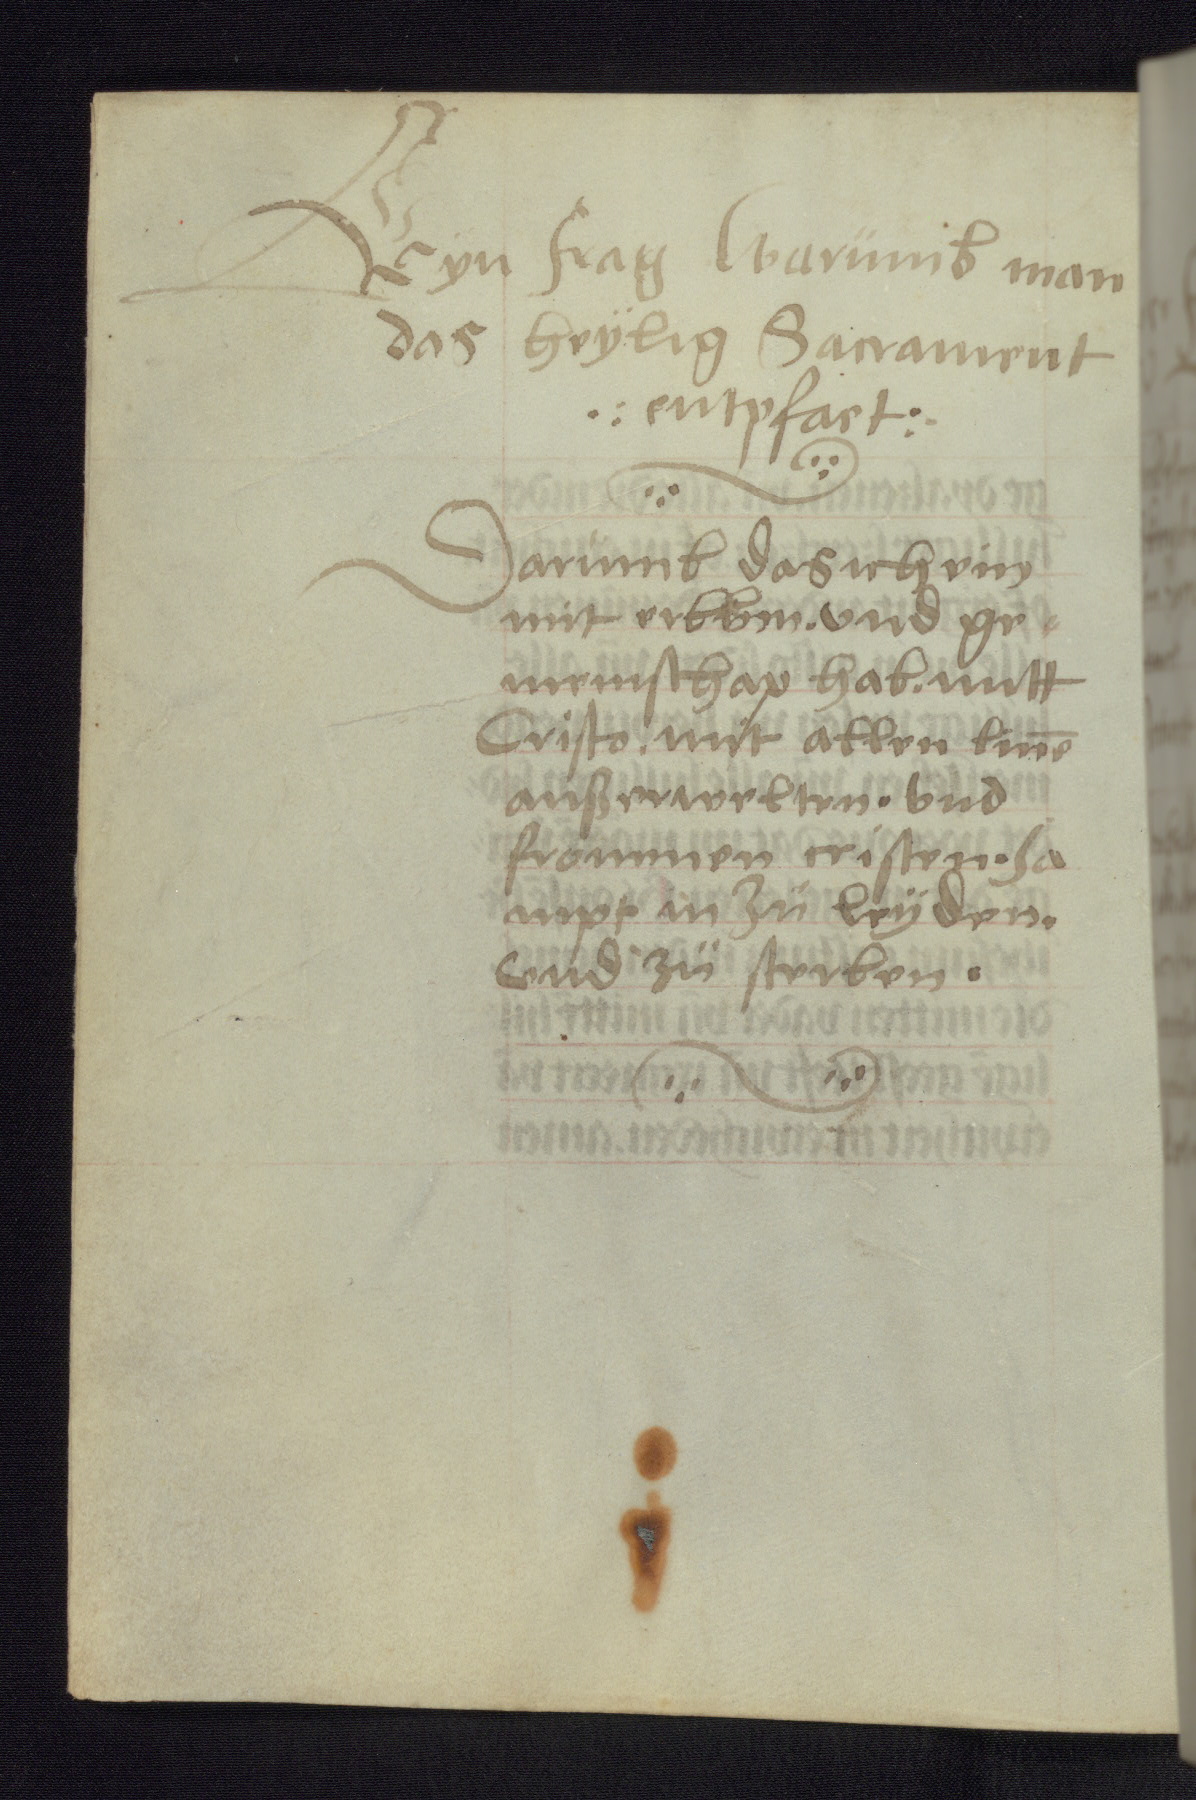 Eyn frag Warümb man
das heÿlig Sacrament
.: entpfaet :.
Darümb das ich ein
mit erbbin. vnd ge
meinschap hab. mitt
Cristo. mit allen
außerwelten. vnd
frommen cristen. sa
mpt in zü leÿden.
vnd zü sterben.